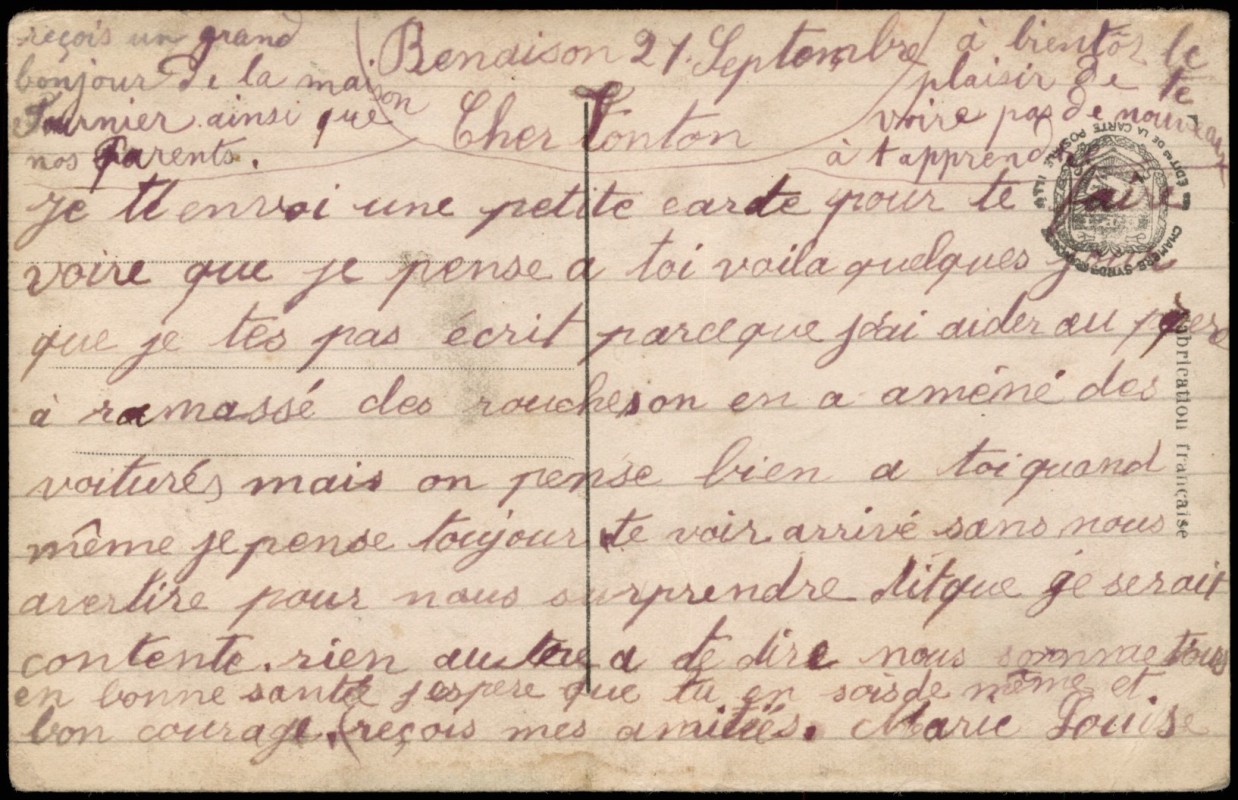 Benaison 21. Septembre
Cher Tonton
je t'envoi une petite carte pour te faire
voire que je pense a toi voila quelques jour
que je tes pas écrit parceque j'ai aider au père
à ramassé des rouches on en a améné des
voiturés mais on pense bien a toi quand
même je pense toujour te voir arrivé sans nous
avertire pour nous surprendre dit que je serait
contente. rien autre a te dire nous somme tous
en bonne santé jespere que tu en sois de même et
bon courage. reçois mes amitiés. Marie Louise
reçois un grand
bonjour de la maison
Fournier ainsi que
nos parents.
à bientôt le
plaisir de te
voire pas de nouveaux
à t apprendre
CHAMBRE SYND DE LA CARTE POSTALE ILL
Fabrication française